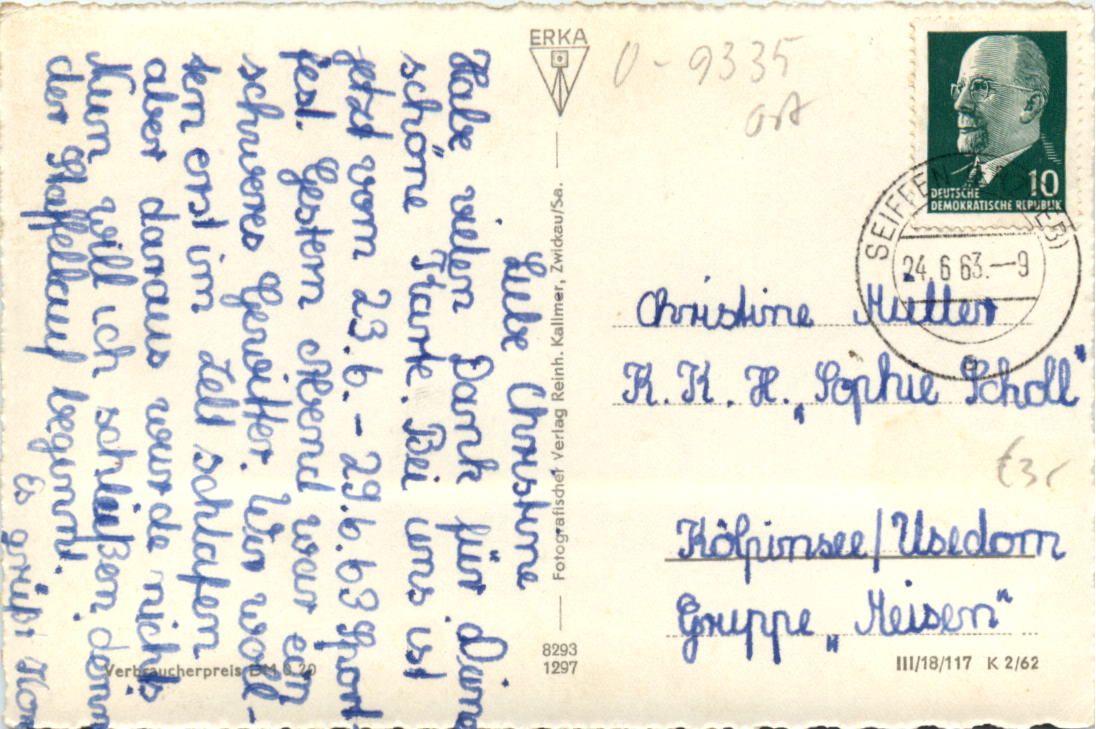 Liebe Christine
Habe vielen Dank für Deine
schöne Karte. Bei uns ist
jetzt vom 23.6. - 29.6.63 Sport
fest. Gestern Abend war ein
schweres Gewitter. Wir woll-
ten erst im Zelt schlafen
aber daraus wurde nichts
Nun will ich schließen denn
der Staffellauf beginnt.
Es grüßt
Verbraucherpreis DM 0.20
ERKA
Fotografischer Verlag Reinh. Kallmer, Zwickau/Sa.
8293
1297
0-9335
ort
10
DEUTSCHE
DEMOKRATISCHE REPUBLIK
SEIFFEN
24.6 63.-9
Christine Müller
K. K. H. „Sophie Scholl"
Kölpinsee/Usedom
Gruppe „Meisen"
III/18/117 K 2/62